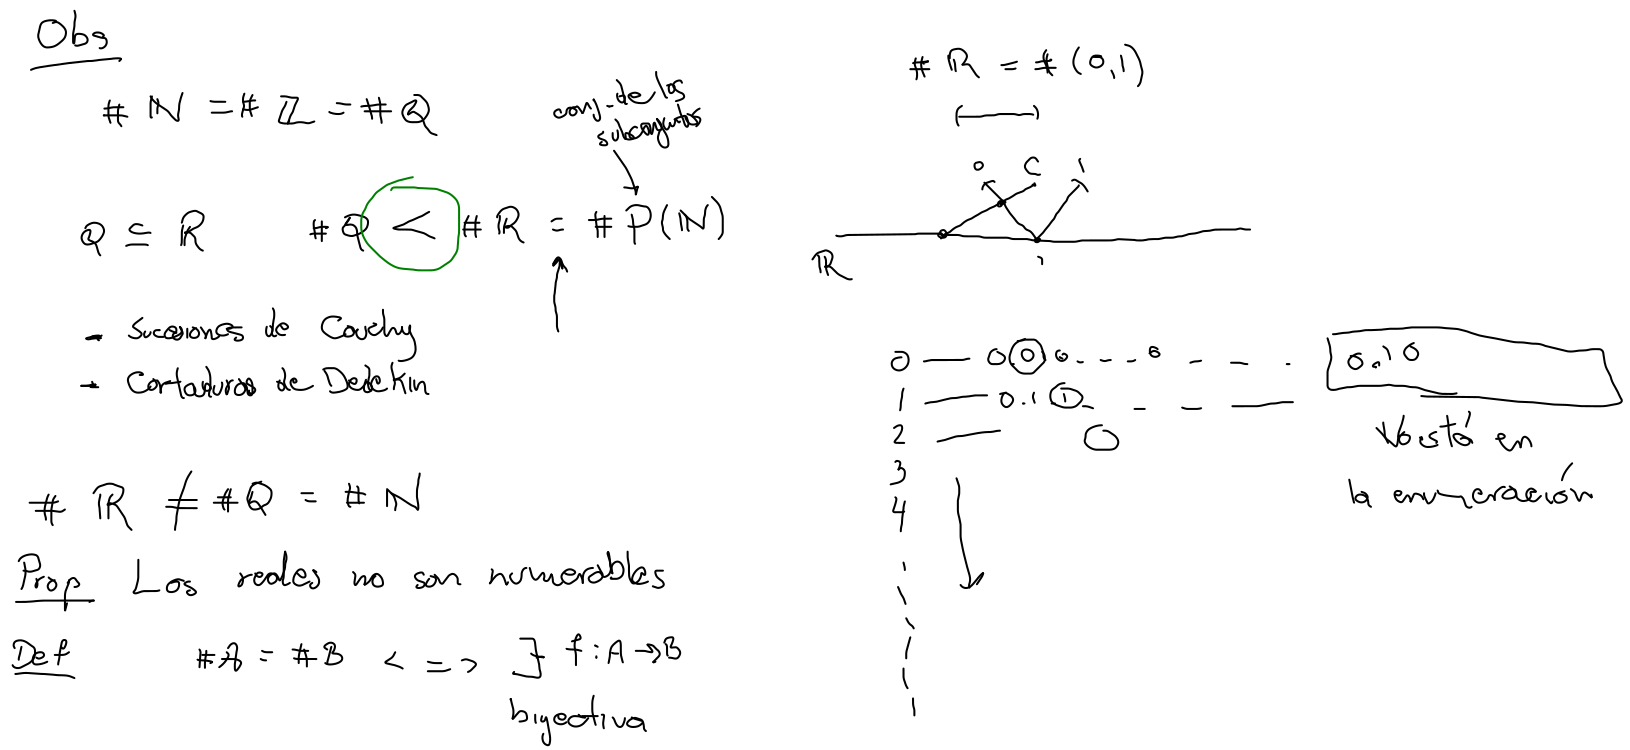 Obs
# ℕ = # ℤ = # ℚ
conj. de los
subconjuntos
ℚ ⊆ ℝ # ℚ < # ℝ = # P(ℕ)
- Sucesiones de Cauchy
- Cortaduras de Dedekin
# ℝ ≠ # ℚ = # ℕ
Prop Los reales no son numerables
Def #A = #B <=> ∃ f: A → B
biyectiva
# ℝ = # (0,1)
(—)
0 C 1
ℝ
0 — 0 0 0 - - - 0 - - - 0.10
1 — 0.11 - - - —
2 — 0
3
4
No está en
la enumeración